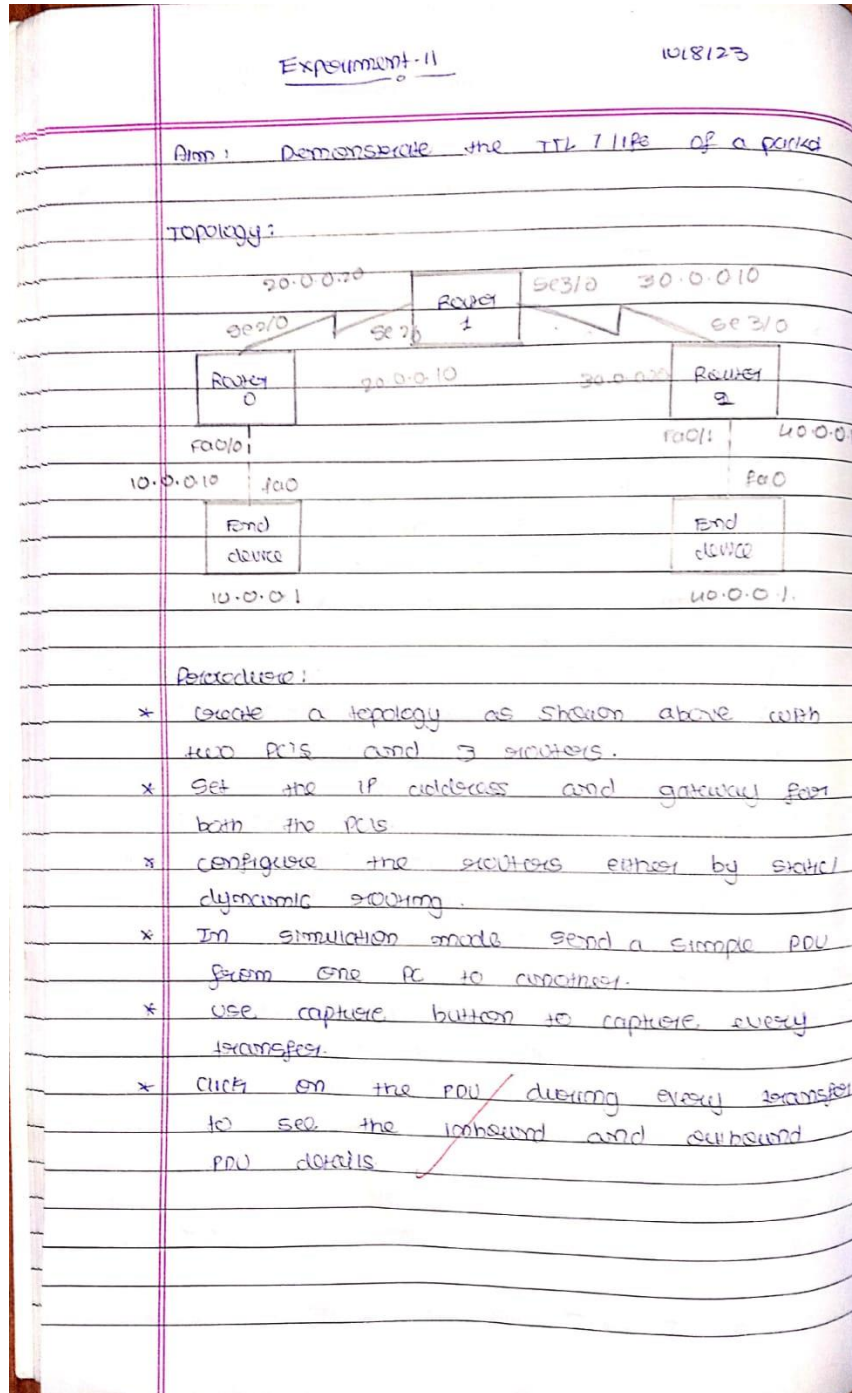 Experiment-11
10/8/23
Aim: Demonstrate the TTL / life of a packet
Topology:
20.0.0.20 Router 1 Se3/0 30.0.0.10
Se2/0 Se2/0 Se3/0
Router 0 20.0.0.10 30.0.0.20 Router 2
Fa0/0 Fa0/1 40.0.0.
10.0.0.10 fa0 fa0
End device End device
10.0.0.1 40.0.0.1.
Procedure:
* Create a topology as shown above with
two PC's and 3 routers.
* Set the IP address and gateway for
both the PC's
* configure the routers either by static/
dynamic routing.
* In simulation mode send a simple PDU
from one PC to another.
* use capture button to capture every
transfer.
* Click on the PDU during every transfer
to see the inbound and outbound
PDU details